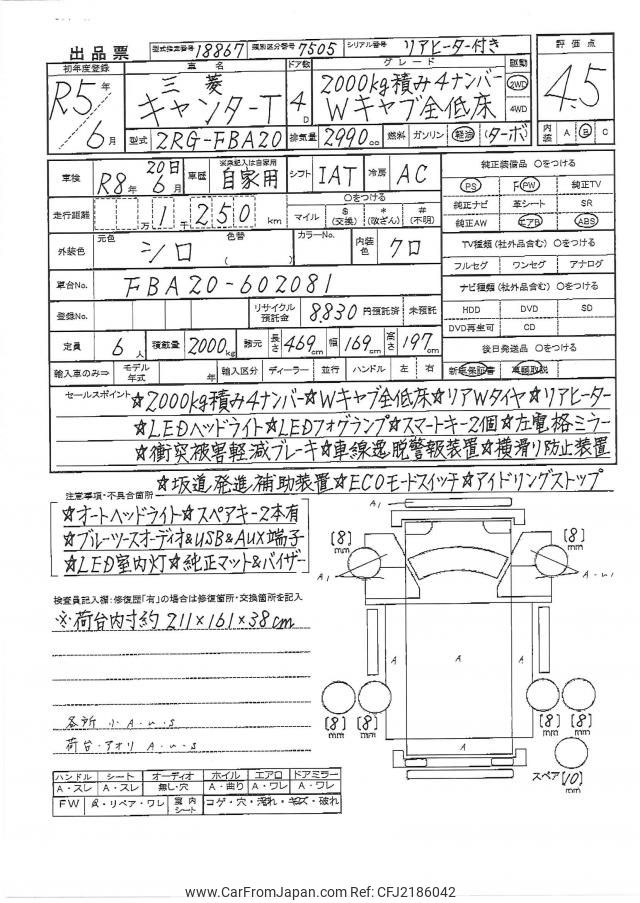 出品票 型式指定番号 18867 類別区分番号 7505 シリアル番号 リアヒーター付き
初年度登録 車名 ドア数 グレード 駆動 評価点
R5年 6月 三菱 キャンターT 4D 2000kg積み4ナンバー Wキャブ全低床 2WD 4WD 4.5
型式 2RG-FBA20 排気量 2990cc 燃料 ガソリン 軽油 (ターボ) 内装 A B C
車検 R8年 6月 20日 車歴 ※未記入は自家用 自家用 シフト IAT 冷房 AC
走行距離 万 1千 250 km ○をつける マイル $(交換) *(改ざん) #(不明)
外装色 元色 シロ 色替 ( ) カラーNo. 内装色 クロ
車台No. FBA20-602081
登録No. リサイクル預託金 8.830 円預託済 未預託
定員 6人 積載量 2000kg 諸元 長さ 469cm 幅 169cm 高さ 197cm
輸入車のみ⇒ モデル年式 年 輸入区分 ディーラー 並行 ハンドル 左 右
純正装備品 ○をつける
PS PW 純正TV
純正ナビ 革シート SR
純正AW エアB ABS
TV種類(社外品含む) ○をつける
フルセグ ワンセグ アナログ
ナビ種類(社外品含む) ○をつける
HDD DVD SD
DVD再生可 CD
後日発送品 ○をつける
新車保証書 車輌取説
セールスポイント ☆2000kg積み4ナンバー☆Wキャブ全低床☆リアWタイヤ☆リアヒーター
☆LEDヘッドライト☆LEDフォグランプ☆スマートキー2個☆左電格ミラー
☆衝突被害軽減ブレーキ☆車線逸脱警報装置☆横滑り防止装置
☆坂道発進補助装置☆ECOモードスイッチ☆アイドリングストップ
注意事項・不具合箇所
☆オートヘッドライト☆スペアキー2本有
☆ブルーツースオーディオ&USB&AUX端子
☆LED室内灯☆純正マット&バイザー
検査員記入欄:修復歴「有」の場合は修復箇所・交換箇所を記入
※荷台内寸約211×161×38cm
各所小A.u.s
荷台・アオリA.u.s
A1
[8]mm [8]mm
A1 A-u1
A A A
[8]mm [8]mm [8]mm [8]mm
A
スペア[10]mm
ハンドル シート オーディオ ホイル エアロ ドアミラー
A・スレ A・スレ 無し・穴 A・曲り A・ワレ A・ワレ
FW Q・リペア・ワレ 室内シート コゲ・穴・汚れ・キズ・破れ
www.CarFromJapan.com Ref: CFJ2186042